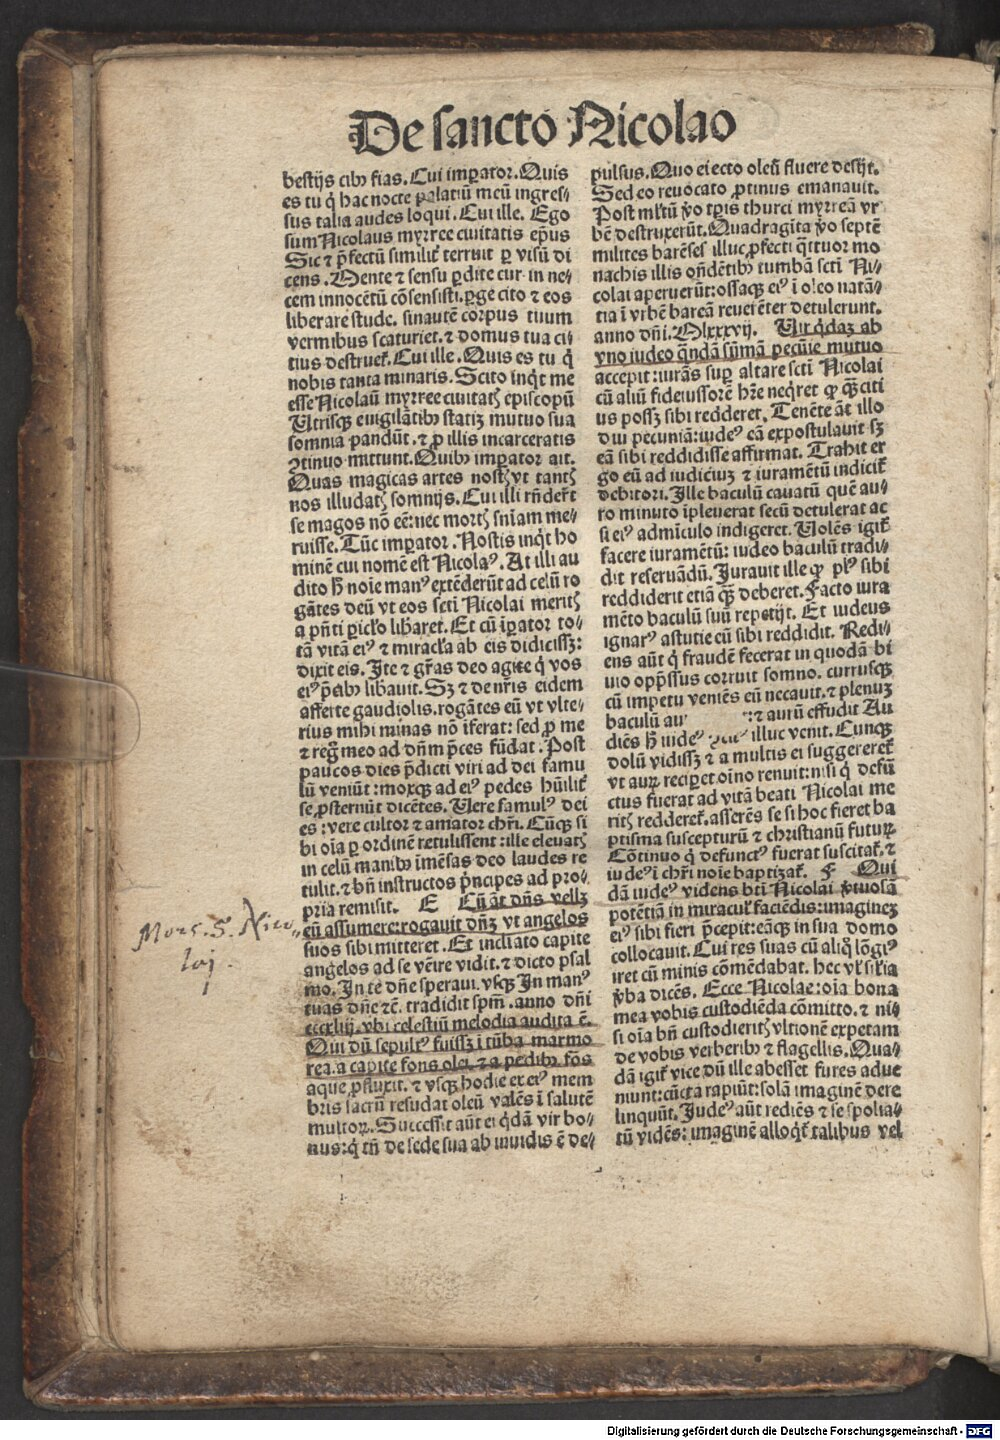 De sancto Nicolao
bestijs cibꝰ fias. Cui imꝑator. Quis
es tu q̇ hac nocte palatiū meū ingres⸗
sus talia audes loqui. Cui ille. Ego
sum Nicolaus myrree ciuitatis ep̄us
Sic ⁊ p̄fectū similiť terruit ꝑ visū di
cens. Mente ⁊ sensu ꝑdite cur in ne⸗
cem innocētū cōsensisti. ꝑge cito ⁊ eos
liberare stude. sinautē corpus tuum
vermibus scaturiet. ⁊ domus tua ci⸗
tius destrueť. Cui ille. Quis es tu q̇
nobis tanta minaris. Scito inq̇t me
esse Nicolaū myrree ciuitatꝭ episcopū
Utrisqꝫ euigilātibꝰ statiꝫ mutuo sua
somnia pandūt. ⁊ ꝓ illis incarceratis
ꝯtinuo mittunt. Quibꝰ imꝑator ait.
Quas magicas artes nostꝭ vt tantꝭ
nos illudatꝭ somnijs. Cui illi rn̄derūt
se magos nō eē: nec mortꝭ sniam me⸗
ruisse. Tūc imꝑator. Nostis inq̇t ho
minē cui nomē est Nicolaꝰ. At illi au
dito h̄ noīe manꝰ extēderūt ad celū ro
gātes deū vt eos sctī Nicolai meritꝭ
a pn̄ti ꝑiclo liberaret. Et cū iꝑator to⸗
tā vitā eiꝰ ⁊ miracla ab eis didicissꝫ:
dixit eis. Ite ⁊ gr̄as deo agite q̇ vos
eiꝰ p̄cibꝰ liberauit. Sꝫ ⁊ de nr̄is eidem
afferte gaudiolis. rogātes eū vt vlte⸗
rius mihi minas nō īferat: sed ꝓ me
⁊ regn̄ meo ad dn̄m p̄ces fūdat. Post
paucos dies p̄dicti viri ad dei famu
lū veniūt: moxqꝫ ad eiꝰ pedes hūiliť
se ꝓsternūt dicētes. Uere famulꝰ dei
es: vere cultor ⁊ amator chr̄i. Cūqꝫ si
bi oīa ꝑ ordinē retulissent: ille eleuatꝭ
in celū manibꝰ īmēsas deo laudes re
tulit. ⁊ bn̄ instructos p̄ncipes ad pro⸗
pria remisit. E Cū āt dn̄s vellꝫ
eū assumere: rogauit dn̄ꝫ vt angelos
suos sibi mitteret. Et inclinato capite
angelos ad se vēire vidit. ⁊ dicto psal
mo. In te dn̄e speraui. vsqꝫ In manꝰ
tuas dn̄e ⁊c̄. tradidit spm̄. anno dn̄i
cccxliij. vbi celestiū melodia audita ē.
Qui dū sepultꝰ fuissꝫ ī tūba marmo
rea. a capite fons olei. ⁊ a pedibꝰ fōs
aque ꝓfluxit. ⁊ vsqꝫ hodie ex eiꝰ mem
bris sacrū resudat oleū valēs ī salutē
multoꝝ. Successit aūt ei q̇dā vir bo⸗
nus: q̇ tn̄ de sede sua ab inuidis ē de⸗
pulsus. Quo eiecto oleū fluere desijt.
Sed eo reuocato ꝓtinus emanauit.
Post ml̄tū ṽo tp̄is thurci myrreā vr
bē destruxerūt. Quadragīta ṽo septē
milites barēses illuc ꝓfecti q̇tuor mo
nachis illis oñdētibꝰ tumbā sctī Ni⸗
colai aperuerūt: ossaqꝫ eiꝰ ī oleo natā⸗
tia ī vrbē bareā reuerēter detulerunt.
anno dn̄i. Mlxxxvij. Uir q̇daꝫ ab
vno iudeo q̄ndā sūmā pecūie mutuo
accepit: iurās suꝑ altare sctī Nicolai
cū aliū fideiussorē hr̄e neq̇ret ꝙ q̄ꝫciti
us possꝫ sibi redderet. Tenēte āt illo
diu pecuniā: iudeꝰ eā expostulauit sꝫ
eā sibi reddidisse affirmat. Trahit er
go eū ad iudiciuꝫ ⁊ iuramētū indiciť
debitori. Ille baculū cauatū quē au⸗
ro minuto īpleuerat secū detulerat ac
si eiꝰ admīculo indigeret. Uolēs igiť
facere iuramētū: iudeo baculū tradi⸗
dit reseruādū. Iurauit ille ꝙ plꝰ sibi
reddiderit etiā q̄ꝫ deberet. Facto iura
mēto baculū suū repetijt. Et iudeus
ignarꝰ astutie eū sibi reddidit. Redi⸗
ens aūt q̇ fraudē fecerat in quodā bi
uio opp̄ssus corruit somno. currusqꝫ
cū impetu veniēs eū necauit. ⁊ plenuꝫ
baculū au ⁊ aurū effudit Au
diēs h̄ iudeꝰ illuc venit. Cunqꝫ
dolū vidissꝫ ⁊ a multis ei suggerereť
vt auꝝ reciꝑet oīno renuit: nisi q̇ defū
ctus fuerat ad vitā beati Nicolai me
ritꝭ reddereť. asserēs se si hoc fieret ba
ptisma suscepturū ⁊ christianū futuꝝ
Cōtinuo q̇ defunctꝰ fuerat suscitať. ⁊
iudeꝰ ī chr̄i noīe baptizať. F Qui
dā iudeꝰ videns bt̄i Nicolai ṽtuosā
potētiā in miracul̓ faciēdis: imagineꝫ
eiꝰ sibi fieri p̄cepit: eāqꝫ in sua domo
collocauit. Cui res suas cū aliq̊ lōgiꝰ
iret cū minis cōmēdabat. hec vl̓ sil̓ia
ṽba dicēs. Ecce Nicolae: oīa bona
mea vobis custodiēda cōmitto. ⁊ ni⸗
si oīa bn̄ custodieritꝭ vltionē expetam
de vobis verberibꝰ ⁊ flagellis. Qua⸗
dā igiť vice dū ille abesset fures adue
niunt: cūcta rapiūt: solā imaginē dere
linquūt. Iudeꝰ aūt rediēs ⁊ se spolia⸗
tū vidēs: imaginē alloq̇ť talibus vel
Mors. S. Nico⸗
laj.
Digitalisierung gefördert durch die Deutsche Forschungsgemeinschaft - DFG